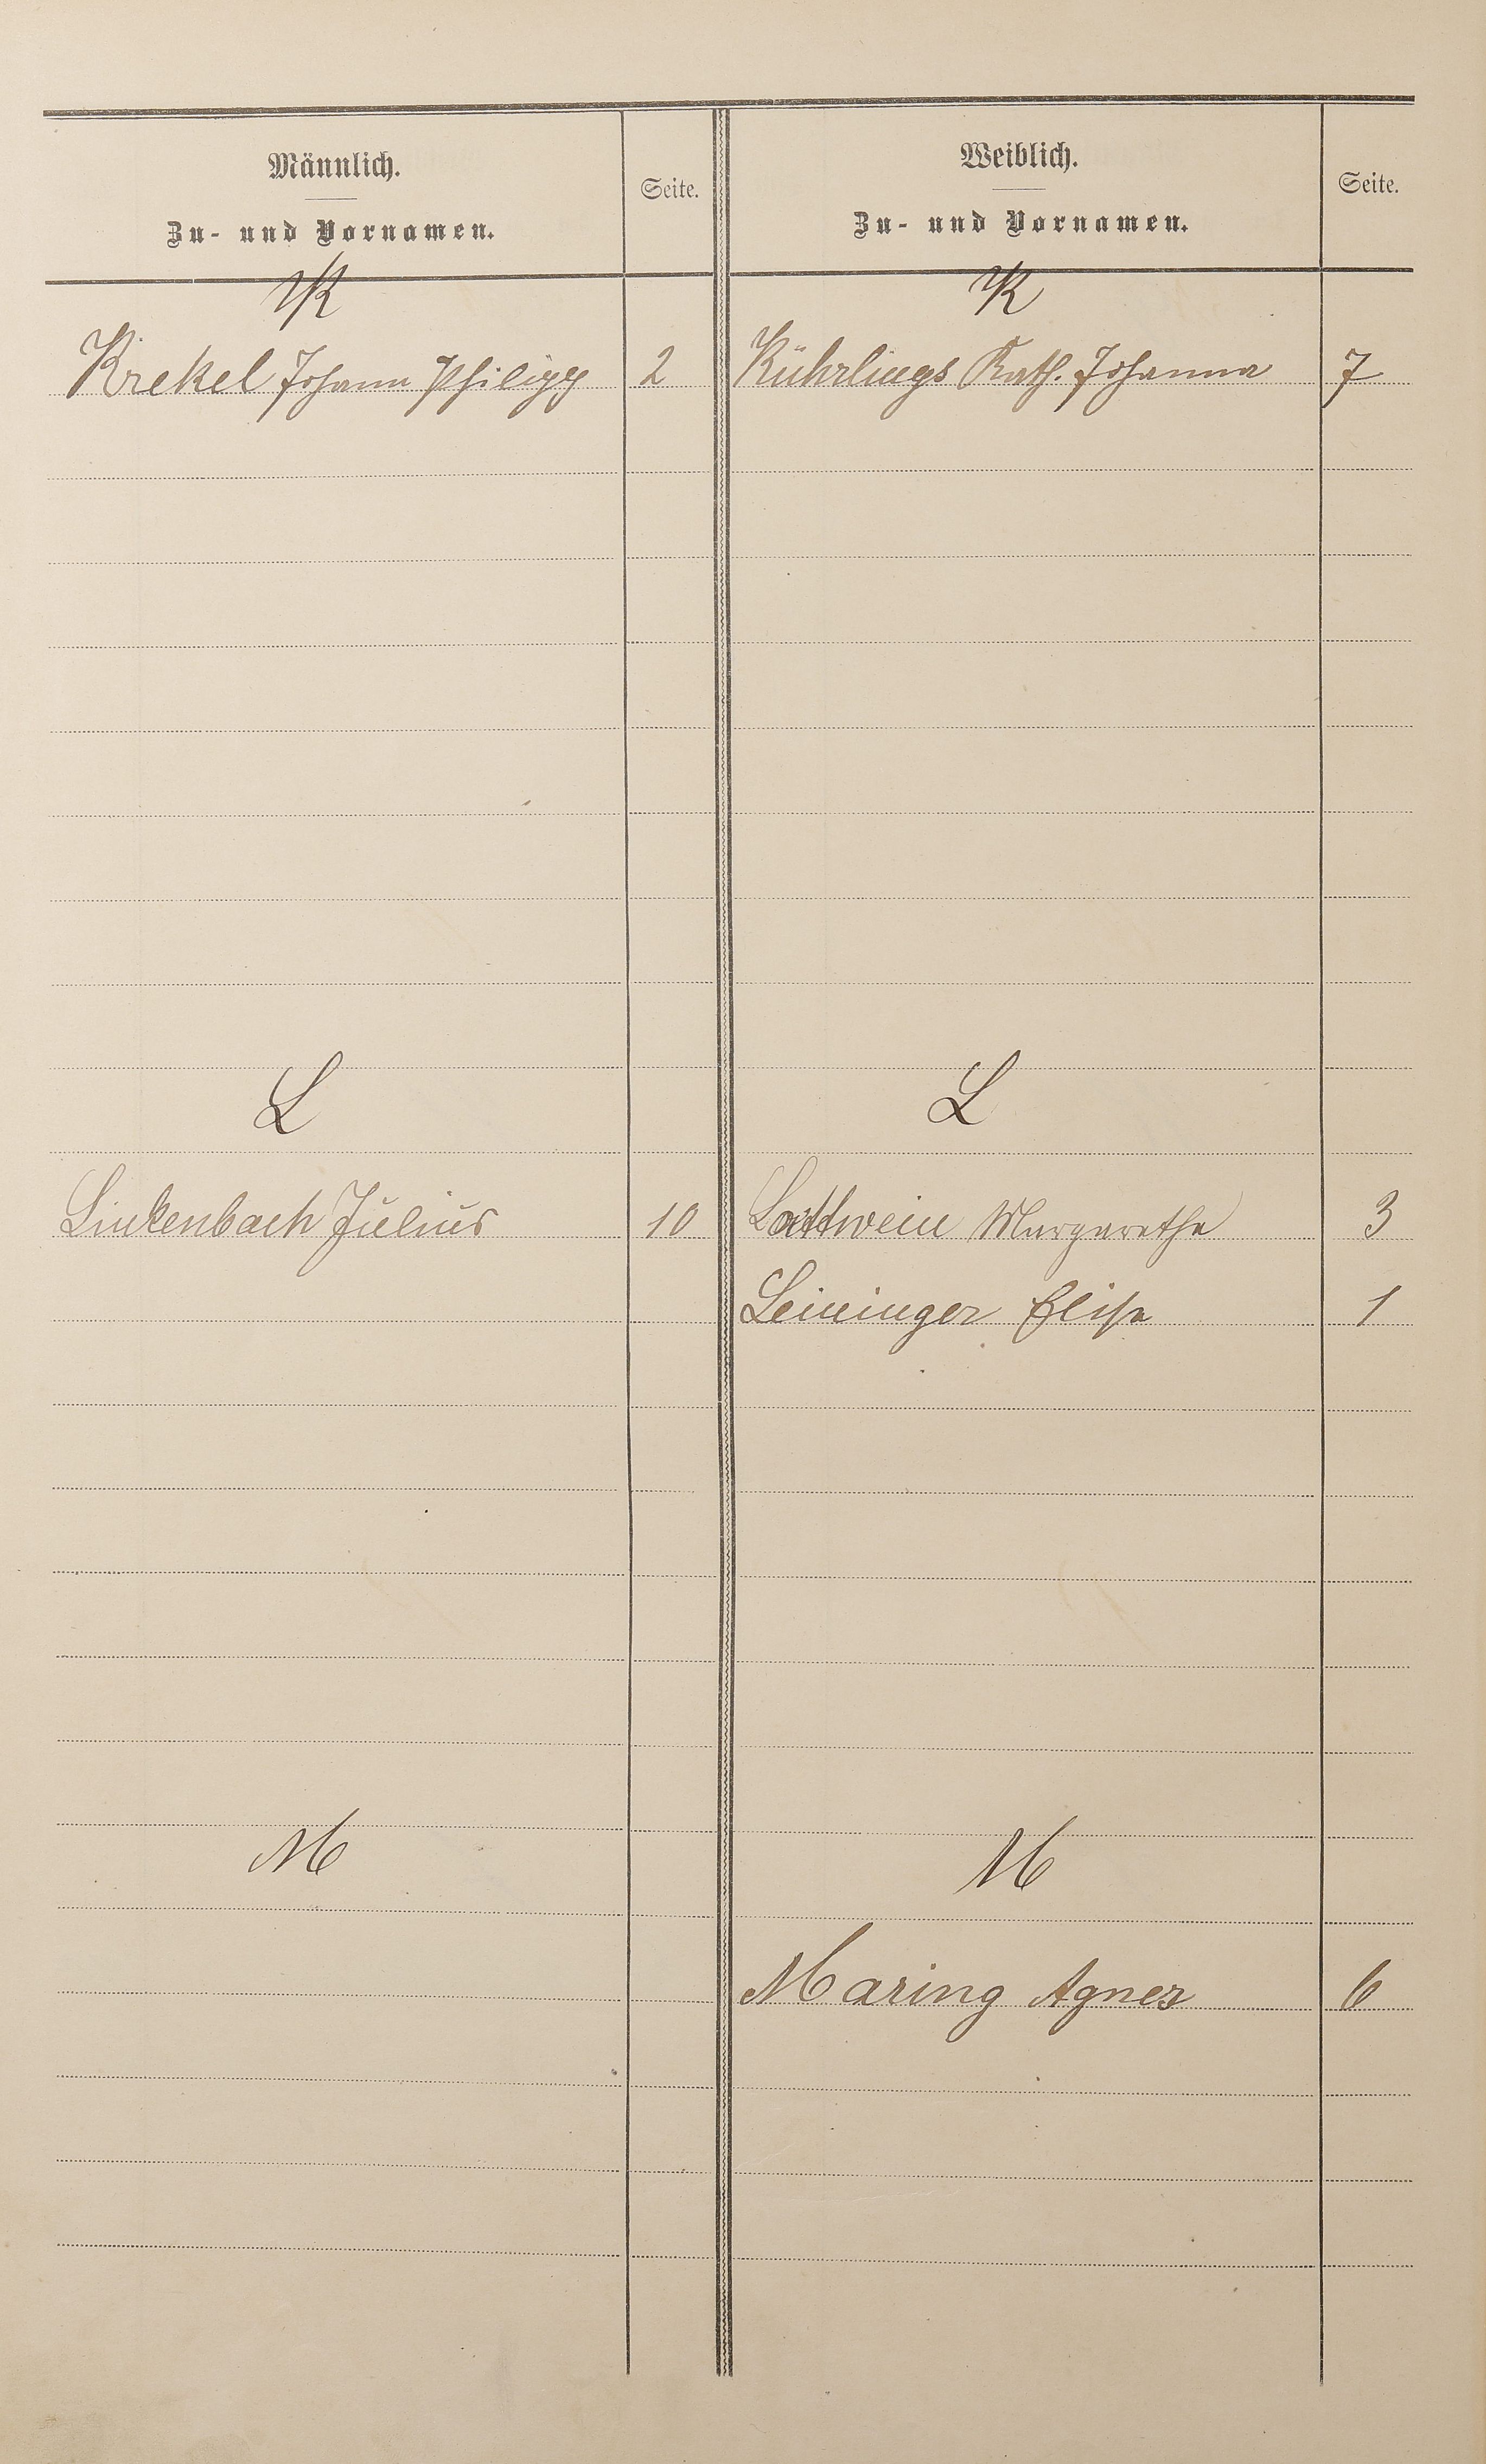 Männlich.
Zu- und Vornamen.
Seite.
Weiblich.
Zu- und Vornamen.
Seite.
K
K
Krekel Johann Philipp 2
Kührlings Kath. Johanna 7
L
L
Linkenbach Julius 10
Margarethe 3
Leininger Elise 1
M
M
Maring Agnes 6